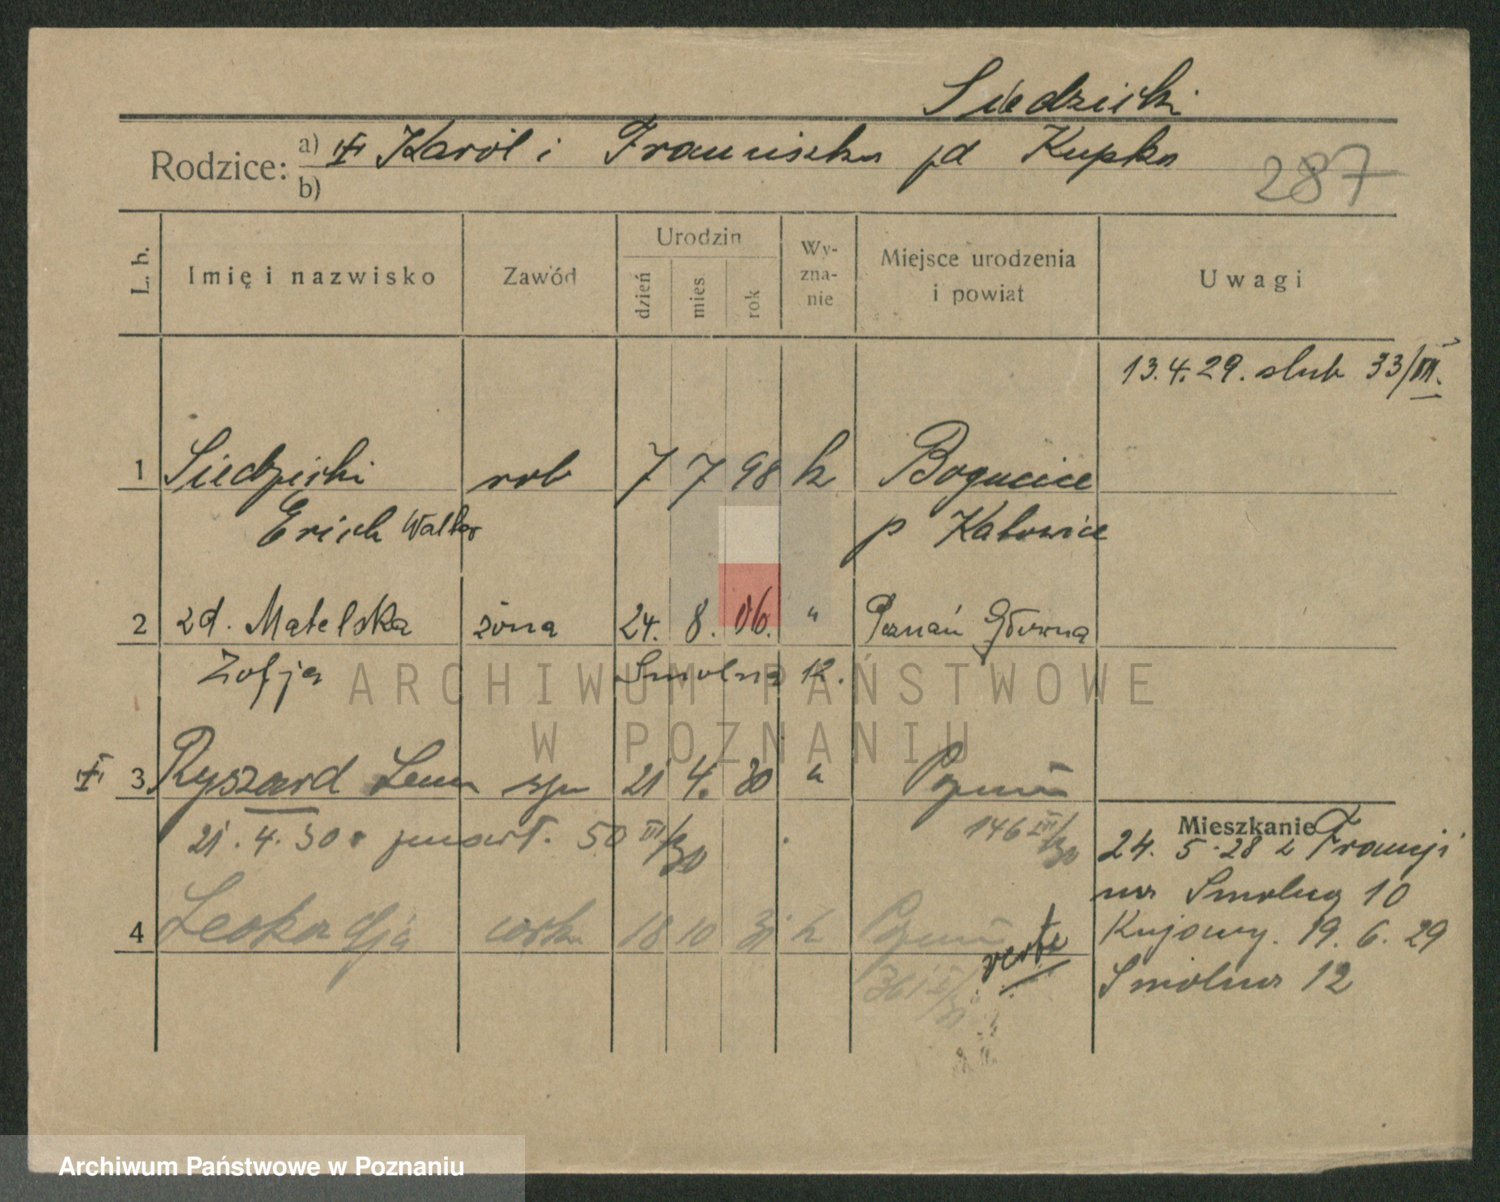 Siedziski
Rodzice: a) Karol i Franciszka zd Kupka
b)
287
L. b. Imię i nazwisko Zawód Urodzin dzień mies. rok Wy-zna-nie Miejsce urodzenia i powiat Uwagi
13.4.29. slub 33/III.
1 Siedziski rob 7 7 98 k Bogucice
Erich Walter p Katowice
2 zd. Matelska żona 24. 8. 06. " Poznań Główna
Zofja Smolna 12.
3 Ryszard Leon syn 21 4. 30 " Poznań
21. 4. 30 zmarł. 50 III/30 146 III/30
Mieszkanie
24. 5. 28 z Francji
na Smolną 10
4 Leokadja córka 18 10 31 k Poznań
verte
Kujawy. 19. 6. 29
Smolna 12
ARCHIWUM PAŃSTWOWE
W POZNANIU
Archiwum Państwowe w Poznaniu